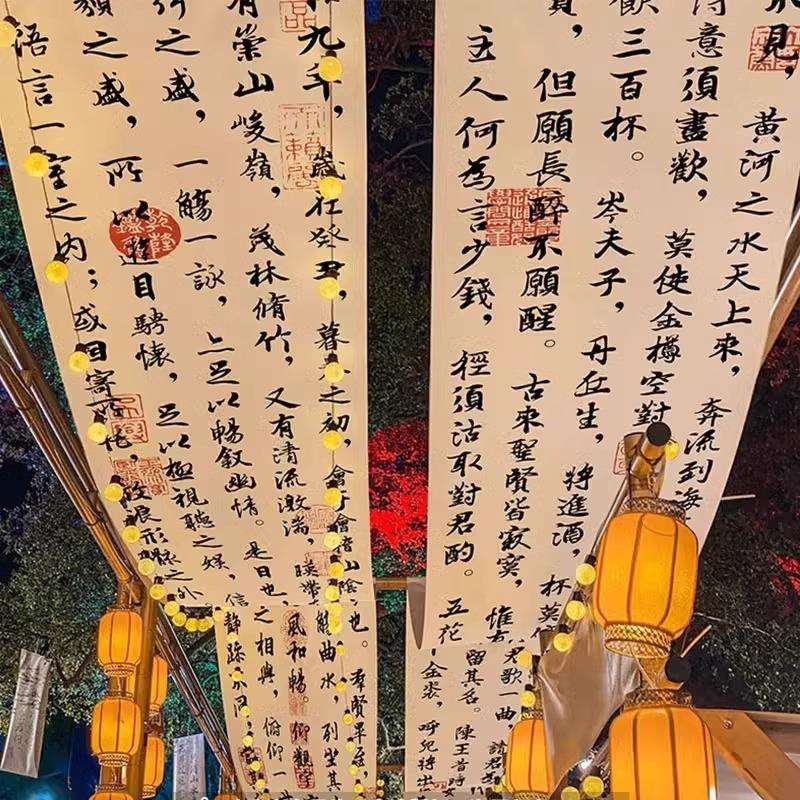 見，黃河之水天上來，奔流到海
意須盡歡，莫使金樽空對
三百杯。岑夫子，丹丘生，將進酒，杯莫
貴，但願長醉不願醒。古來聖賢皆寂寞，惟有
主人何為言少錢，徑須沽取對君酌。五花
君歌一曲，請君為
留其名。陳王昔時
金裘，呼兒將出
九年，歲在癸丑，暮春之初，會于會稽山陰
有崇山峻嶺，茂林脩竹，又有清流激湍，映帶
行之盛，一觴一詠，亦足以暢敘幽情。是日也
類之盛，所以遊目騁懷，足以極視聽之娛，信
語言一室之內；或因寄所托，放浪形骸之外
也。羣賢畢至，
曲水，列坐其
風和暢，仰觀宇
之相與，俯仰一
靜躁不同